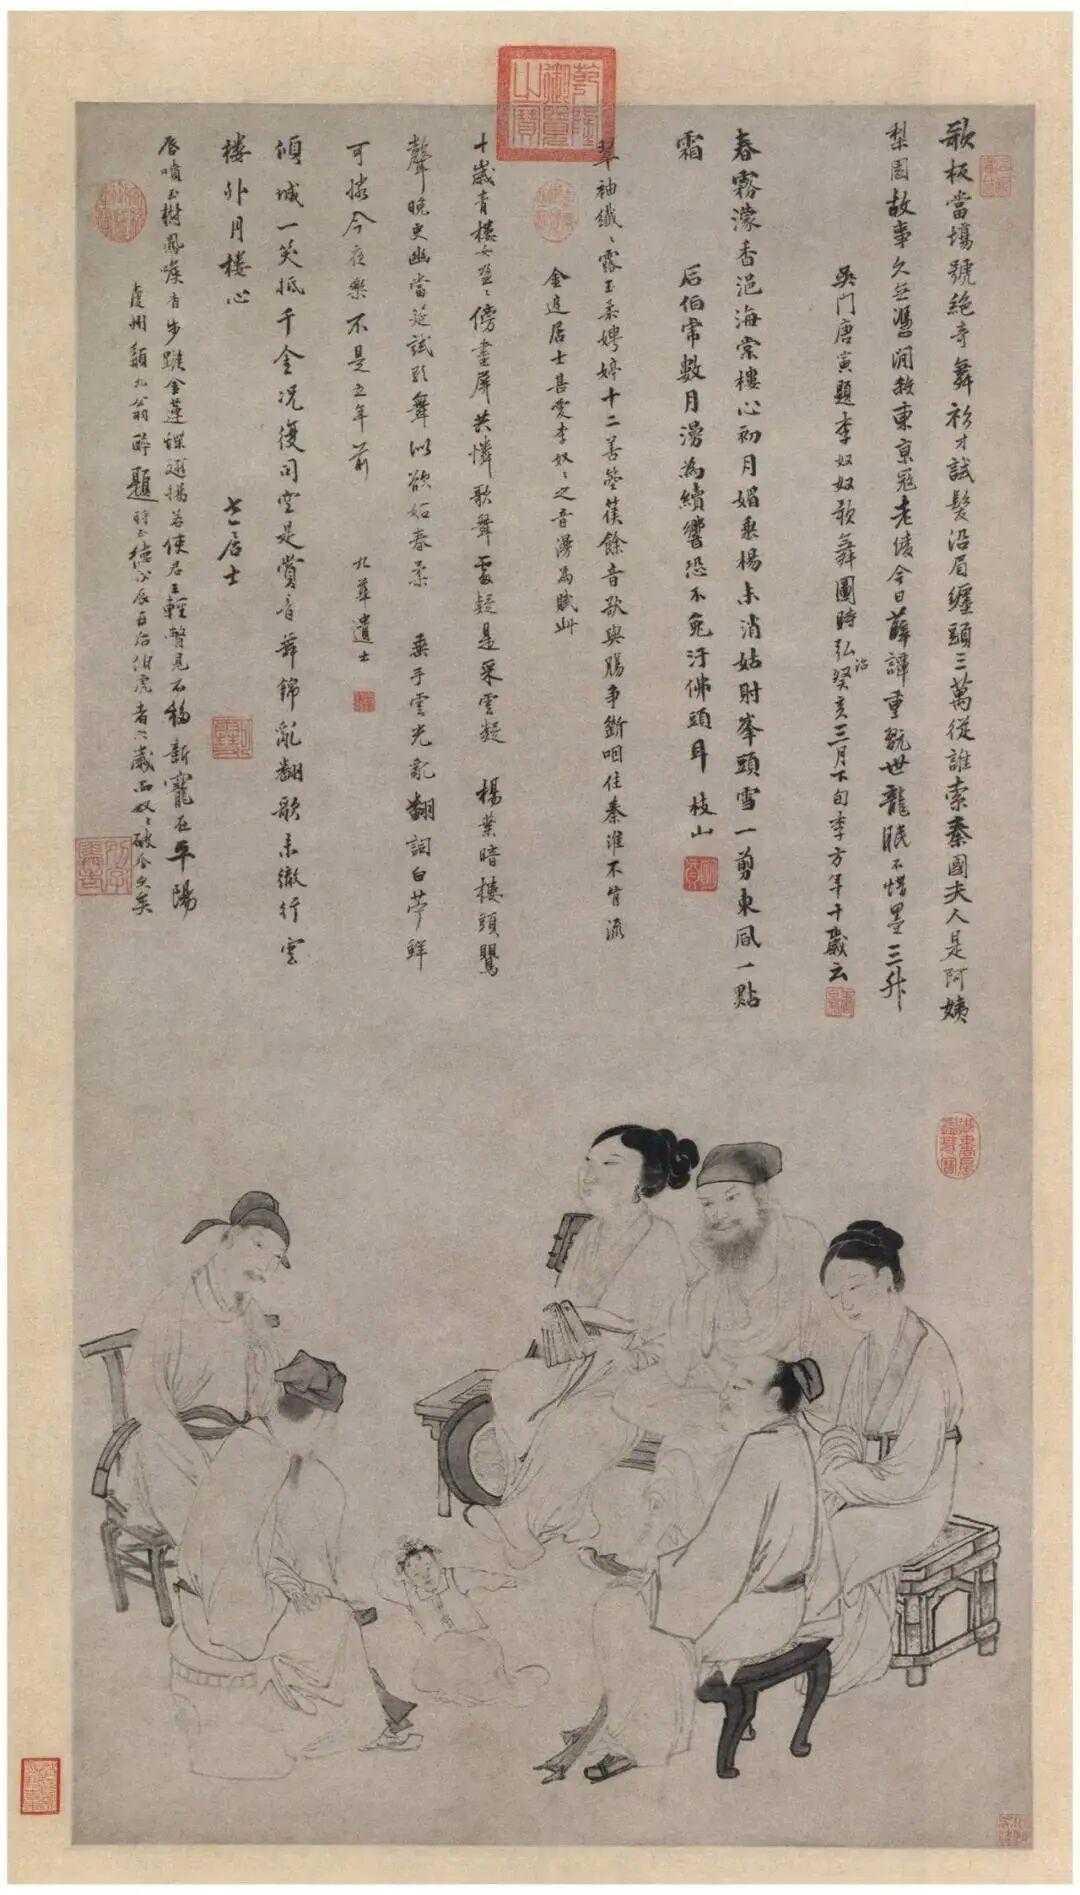 歌板當場號絕奇舞衫才試髮沿眉纏頭三萬從誰索秦國夫人是阿姨
梨園故事久無憑閒殺東京寇老陵今日薛譚重玩世龍眠不惜墨三升
吳門唐寅題李奴奴歌舞圖時弘治癸亥三月下旬李方年十歲云
春霧濛香浥海棠樓心初月媚垂楊未消姑射峯頭雪一剪東風一點
霜
后伯常數月漫為續響恐不免汙佛頭耳 枝山
翠袖纖纖露玉柔娉婷十二善箜篌餘音欲與腸爭斷咽住秦淮不肯流
金 居士甚愛李奴奴之音漫為賦此
十歲青樓女 傍畫屏共憐歌舞處疑是采雲凝 楊葉暗樓頭鶯
聲晚更幽當筵試歌舞似欲妬春柔 垂手雲光亂翻詞白苧鮮
可憐今夜樂不是五年前
九華遺士
傾城一笑抵千金況復司空是賞音舞錦亂翻歌未徹行雲
樓外月樓心
七一居士
唇噴玉樹鳳喉 步躧金蓮 遞揚若使君王輕瞥見不移新寵在平陽
虔州 九翁醉題時正德
乾隆御覽之寶